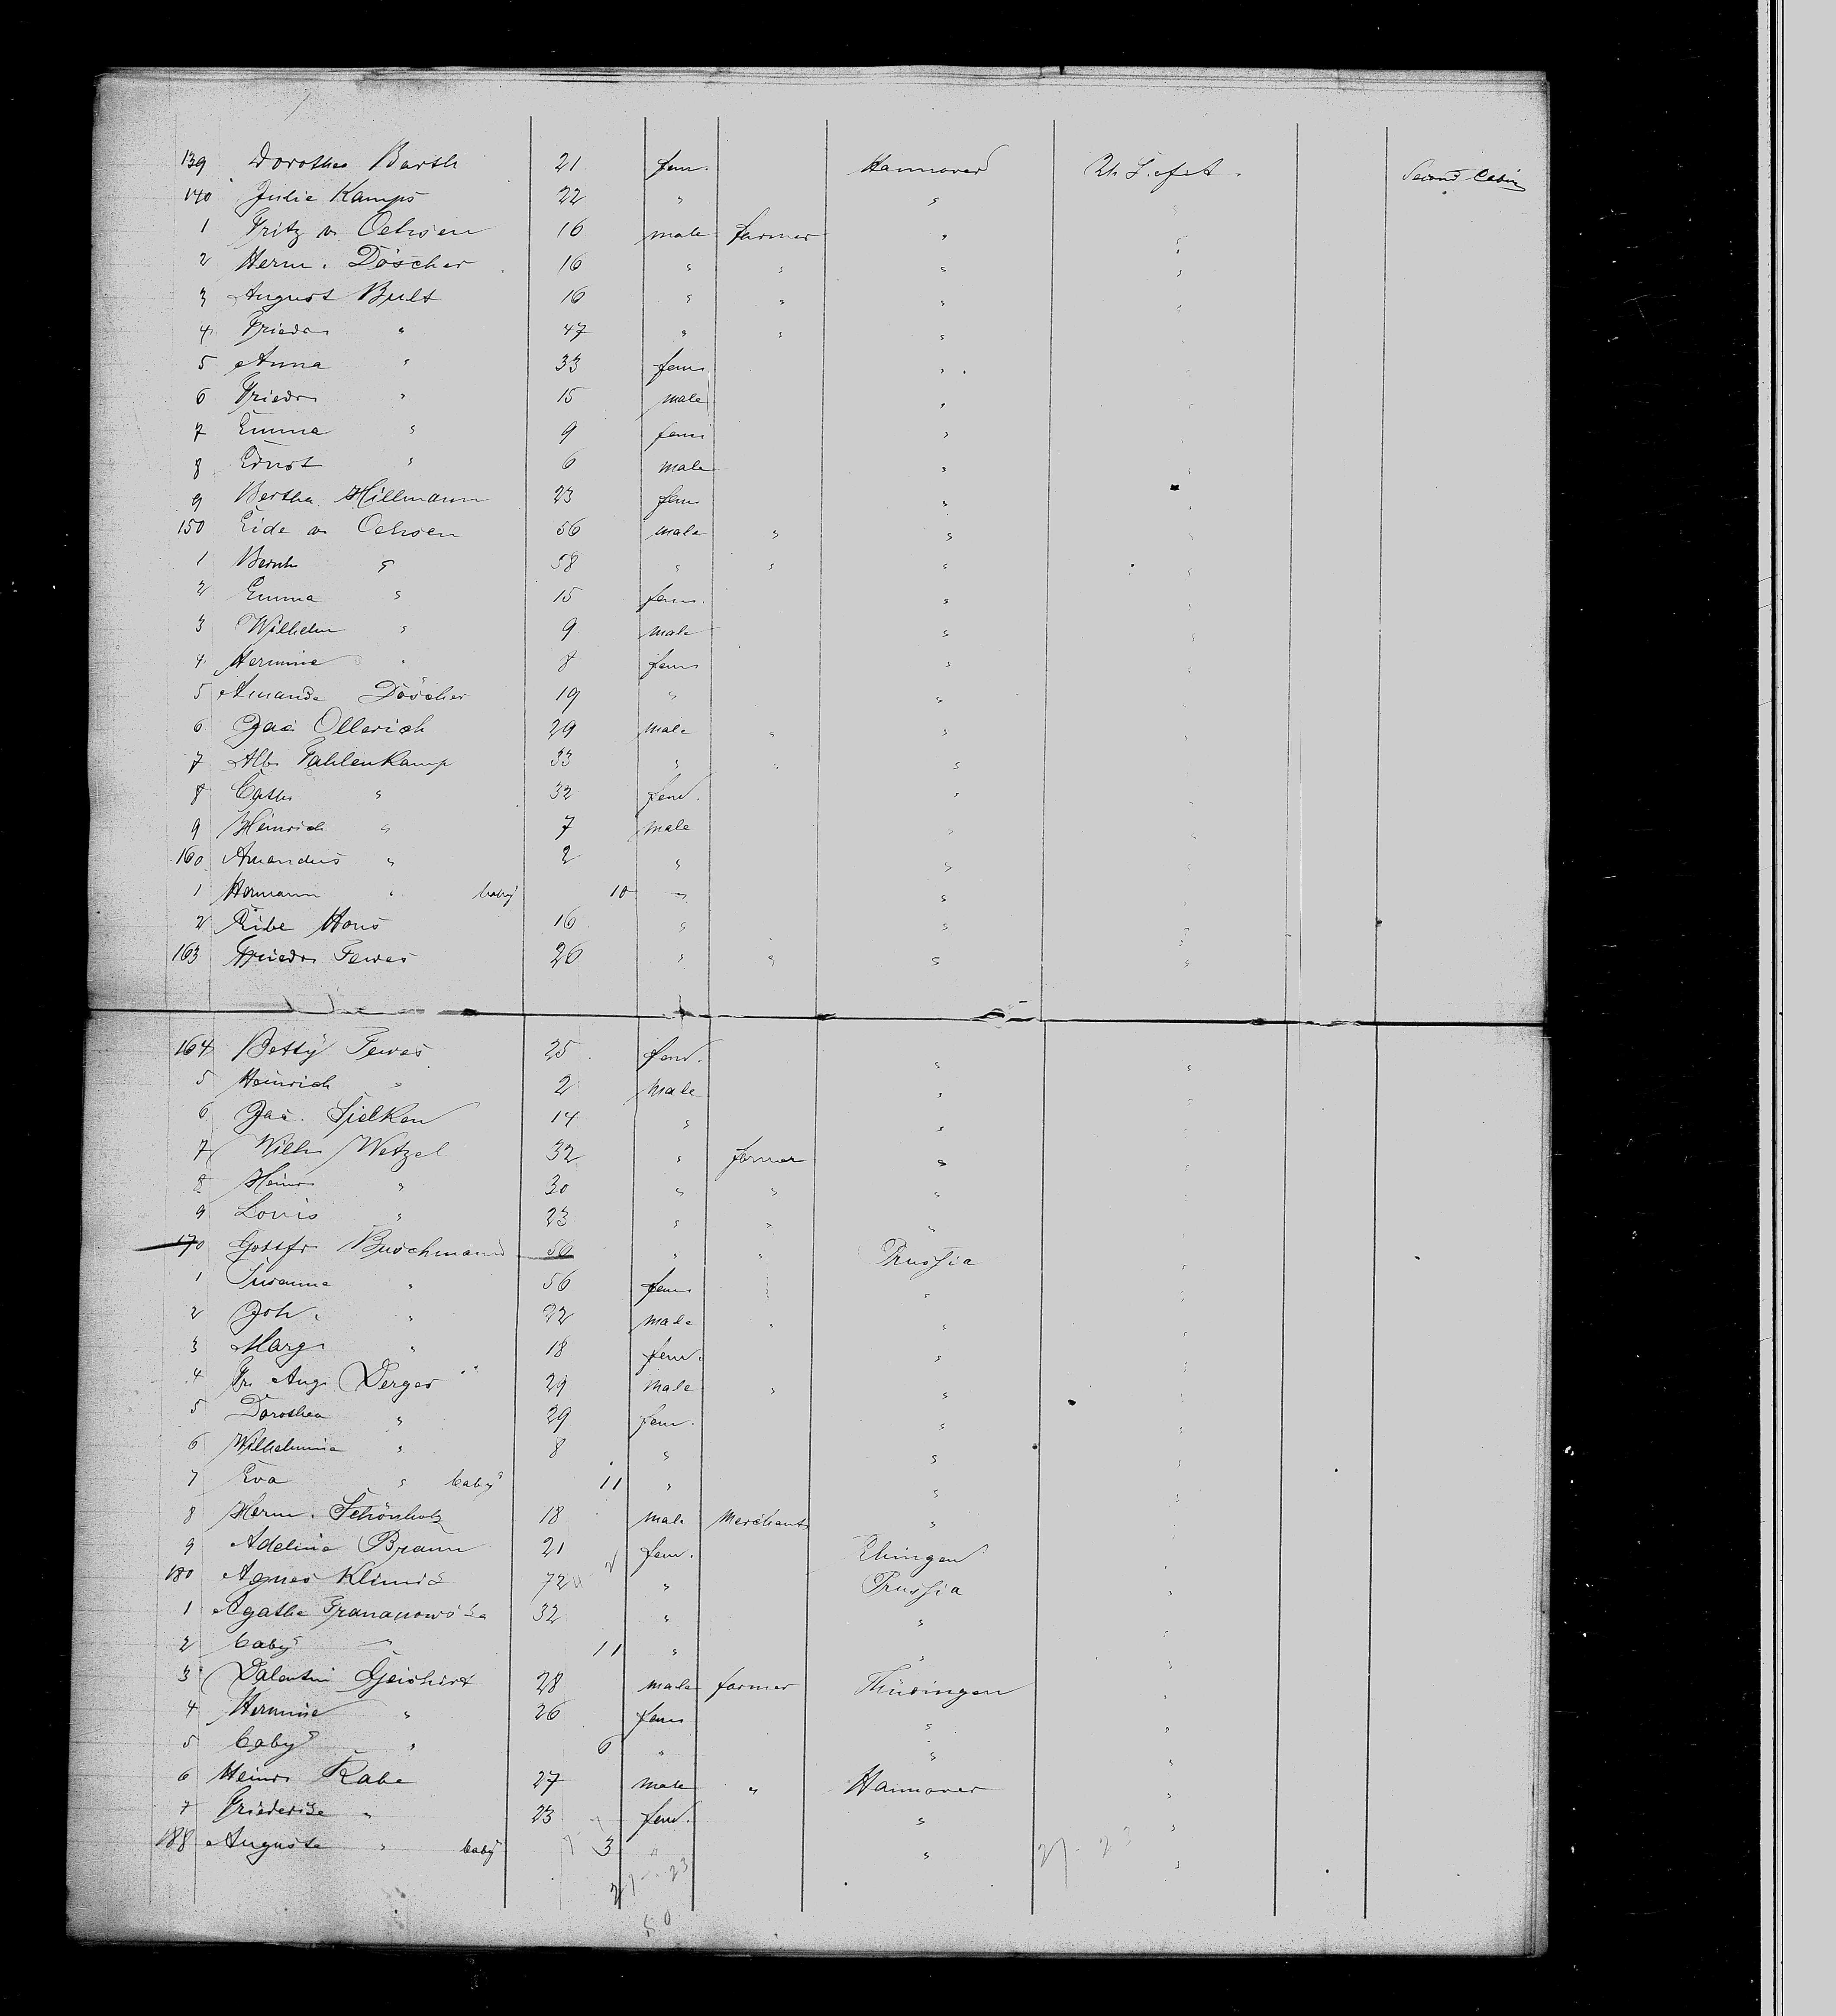 139 Dorothea Barth 21 fem. Hannover U. S. of A. Second Cabin
140 Julie Kamps 22 " " "
1 Fritz v. Oehsen 16 male farmer " "
2 Herm. Döscher 16 " " " "
3 August Bult 16 " " " "
4 Friedr. " 47 " " " "
5 Anna " 33 fem " "
6 Friedr " 15 male " "
7 Emma " 9 fem " "
8 Ernst " 6 male " "
9 Bertha Hillmann 23 fem " "
150 Eide v. Oehsen 56 male " " "
1 Bernh " 58 " " " "
2 Emma " 15 fem. " "
3 Wilhelm " 9 male " "
4 Hermine " 8 fem " "
5 Amanda Döscher 19 " " "
6 Jac. Ollerich 29 male " " "
7 Alb. Fahlenkamp 33 " " " "
8 Cath. " 32 fem. " "
9 Heinrich " 7 male " "
160 Amandus " 2 " " "
1 Hermann " baby 10 " " "
2 Hons 16 " " "
163 Friedr. Tewes 26 " " " "
164 Betty Tewes 25 fem. " "
5 Heinrich " 2 male " "
6 Jac. Sielken 14 " " "
7 Wilh. Wetzel 32 " farmer " "
8 Heinr " 30 " " " "
9 Louis " 23 " " " "
170 Gottfr Buschmann 56 " " Prussia "
1 Susanna " 56 fem " "
2 Joh. " 22 male " " "
3 Marg. " 18 fem. " "
4 Fr. Aug. Derger 29 male " " "
5 Dorothea " 29 fem. " "
6 Wilhelmine " 8 " " "
7 Eva " baby 11 " " "
8 Herm. Schönholz 18 male Merchant " "
9 Adeline Braun 21 fem. Ehingen "
180 Agnes Klimis 72 " Prussia "
1 Agathe 32 " " "
2 baby " 11 " " "
3 Valentin Geishirt 28 male farmer Thüringen "
4 Hermine " 26 fem " "
5 baby " 6 " " "
6 Heinr. Rabe 27 male " Hannover "
7 Friederike " 23 fem. " "
188 Auguste " baby 3 " " "
27-23 27-23
50